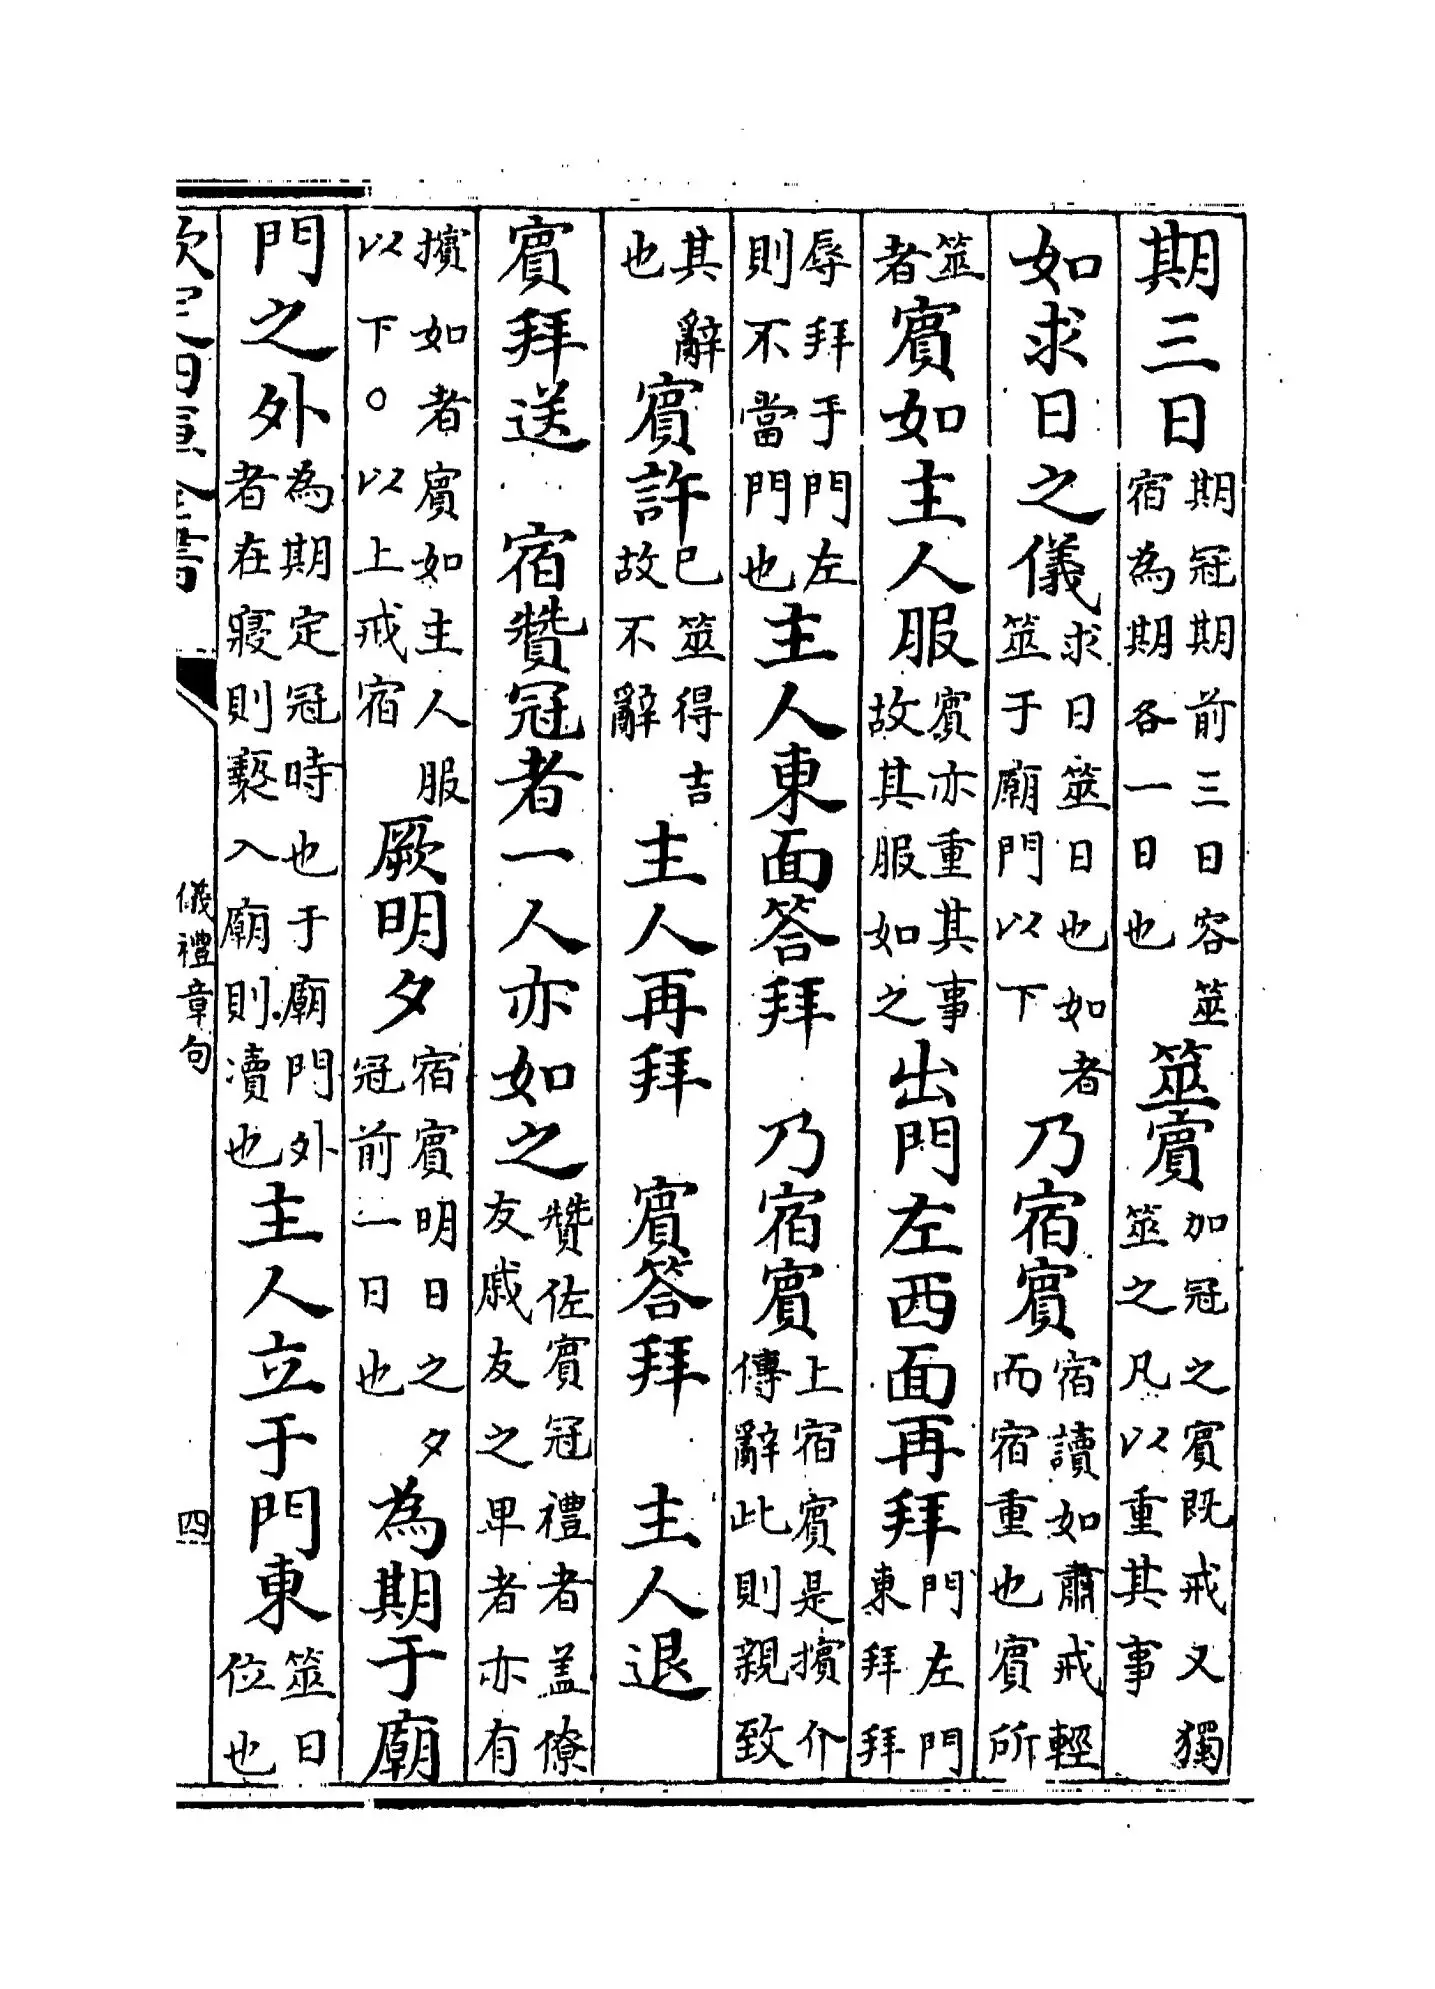 期三日期冠期前三日容筮宿為期各一日也筮賓加冠之賓既戒又獨筮之凡以重其事
如求日之儀求日筮日也如者筮于廟門以下乃宿賓宿讀如肅戒輕而宿重也賓所
筮者賓如主人服賓亦重其事故其服如之出門左西面再拜門左門東拜拜
辱拜于門左則不當門也主人東面答拜　乃宿賓上宿賓是擯介傳辭此則親致
其辭也賓許已筮得吉故不辭主人再拜　賓答拜　主人退
賓拜送　宿贊冠者一人亦如之贊佐賓冠禮者盖僚友戚友之卑者亦有
擯如者賓如主人服以下○以上戒宿厥明夕宿賓明日之夕冠前一日也為期于廟
門之外為期定冠時也于廟門外者在寢則褻入廟則瀆也主人立于門東筮日位也
欽定四庫全書
儀禮章句
四